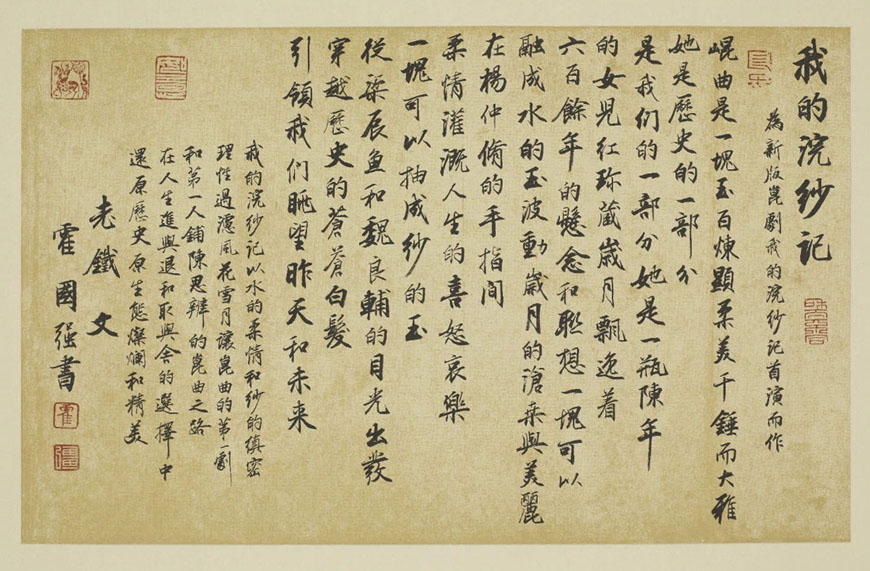 我的浣纱记
為新版崑劇我的浣纱记首演而作
崐曲是一塊玉百煉顯柔美千錘而大雅
她是歷史的一部分
是我们的一部分她是一瓶陳年
的女児红珎蔵歳月飄逸着
六百餘年的懸念和聯想一塊可以
融成水的玉波動歳月的滄桒與美麗
在楊仲脩的手指间
柔情灌溉人生的喜怒哀樂
一塊可以抽成纱的玉
從梁辰鱼和魏良輔的目光出發
穿越歷史的蒼蒼白髮
引領我们眺望昨天和未来
我的浣纱记以水的柔情和纱的縝密
理性過濾風花雪月讓崑曲的第一劇
和第一人鋪陳思辨的崑曲之路
在人生進與退和取與舍的選擇中
還原歷史原生態燦斕和精美
老鐵文
霍國强書